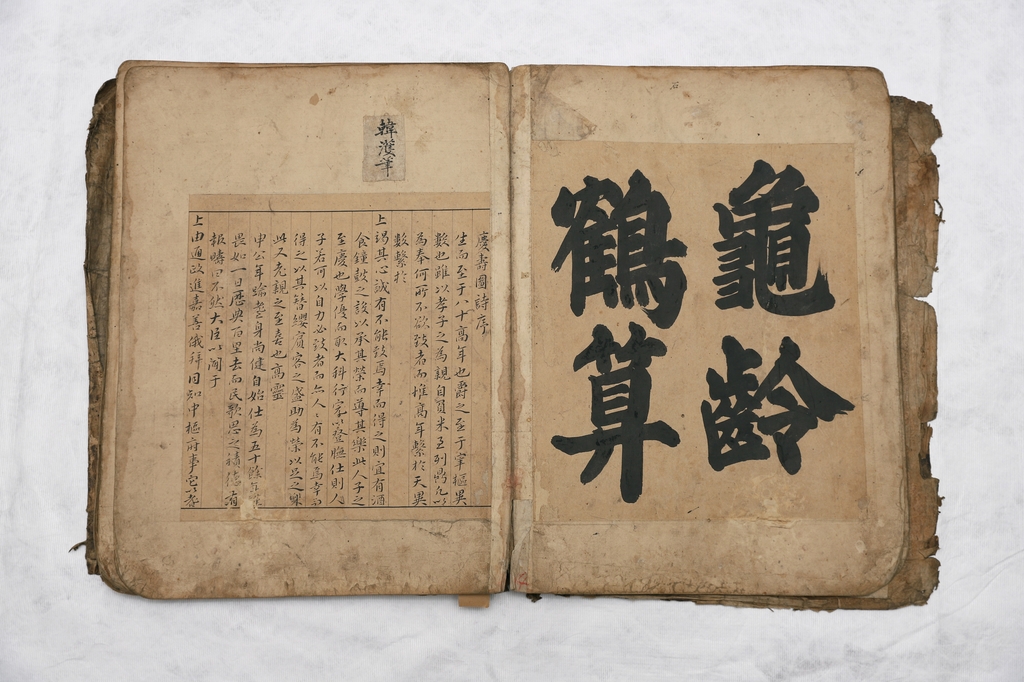 龜齡
鶴算
韓濩筆
慶壽圖詩序
生而至于八十高年也爵之至于宰樞異
數也雖以孝子之為親自負米至列鼎凡以
為奉何所不欲致者而惟高年繫於天異
數繫於
上竭其心誠有不能致焉幸而得之則宜有酒
食鍾鼓之設以承其榮而尊其樂此人子之
至慶也學優而取大科行家以登膴仕則人
子若可以自力必致者而亦人人有不能焉幸而
得之以其簪纓賓客之盛助為榮以岂之樂
此又老親之至喜也高靈
申公年踰耋身尚健自始仕為五十餘年
畏如一日歷典百里去而民歌思之績德有
報疇曰不然大臣以聞于
上由通政進嘉善俄拜同知中樞府事它以耆